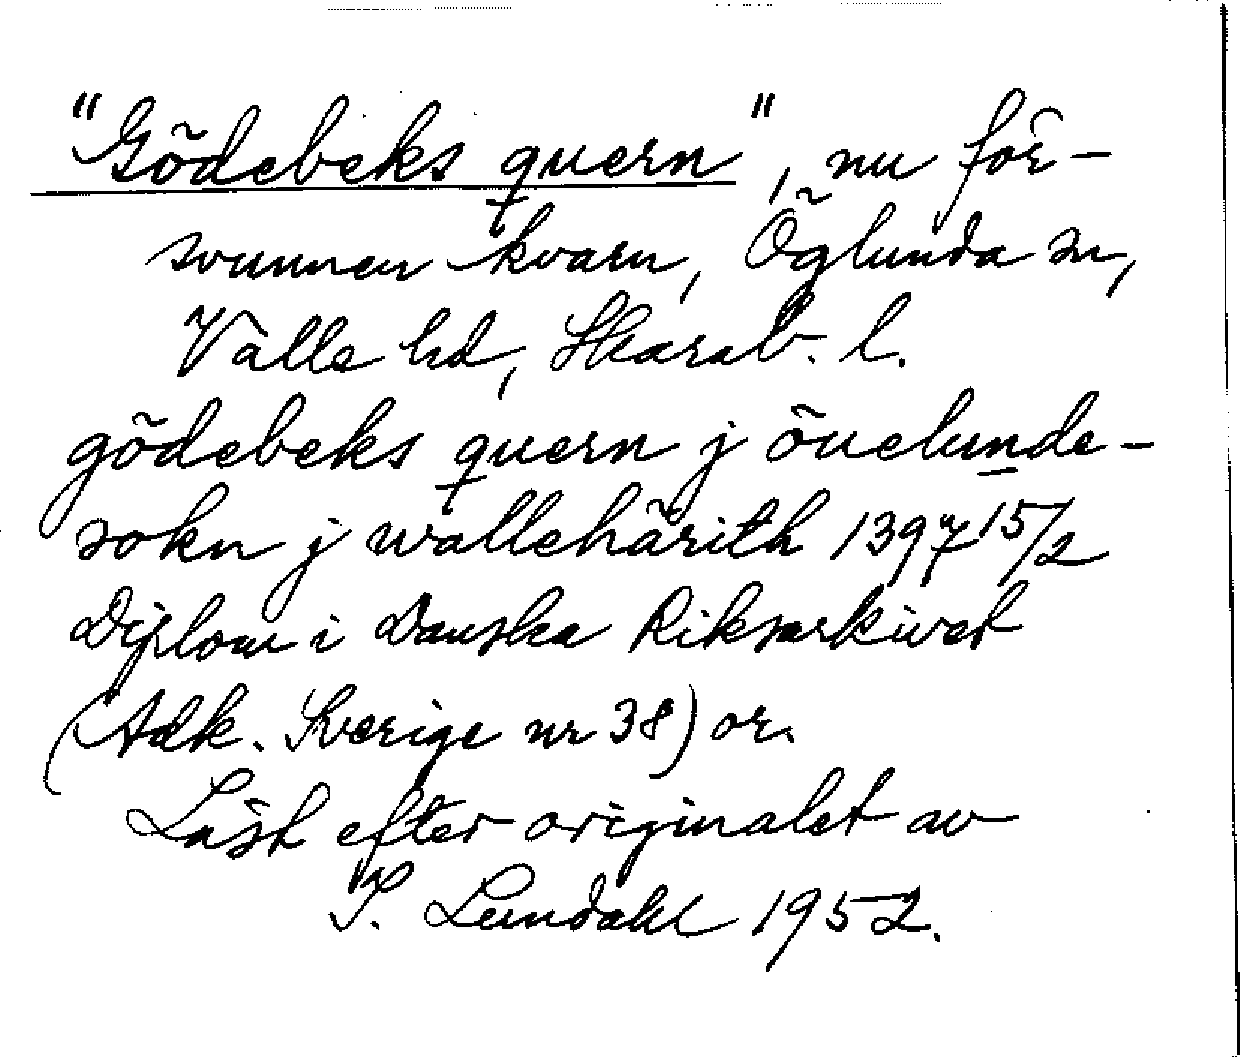 "Gödebeks quern", nu för-
svunnen kvarn, Öglunda sn,
Valle hd, Skarab. l.
gödebeks quern j öuelunde-
sokn j wallehärith 1397 15/2
Diplom i Danska Riksarkivet
(Adk. Sverige nr 38) or.
Läst efter originalet av
I. Lundahl 1952.